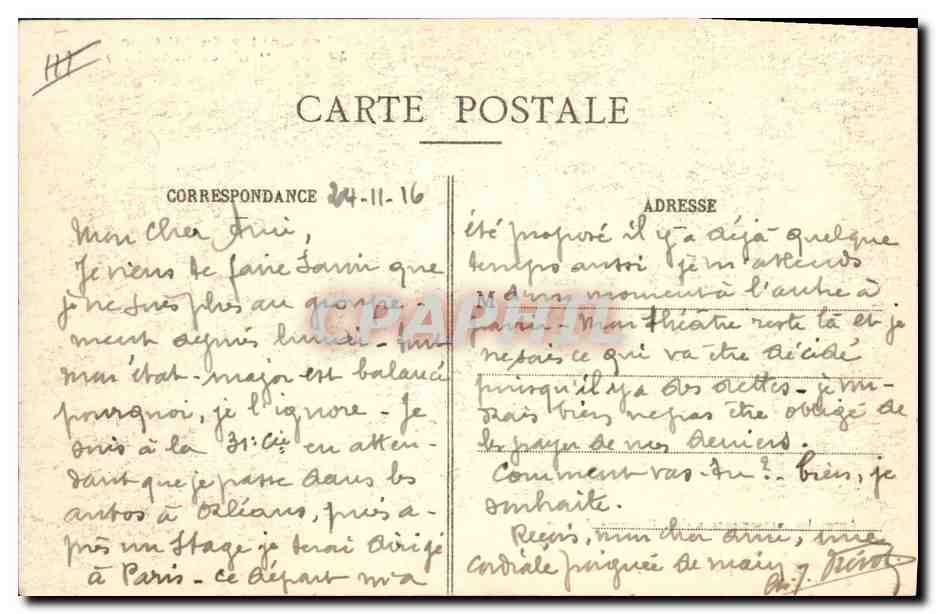 III
CARTE POSTALE
CORRESPONDANCE 24-11-16
Mon cher Ami,
Je viens te faire savoir que
je ne suis plus au groupe-
ment depuis lundi - tout
mon état-major est balancé
pourquoi, je l'ignore - Je
suis à la 31e Cie en atten-
dant que je passe dans les
autos à Orléans, puis a-
près un stage je serai dirigé
à Paris - ce départ m'a
ADRESSE
été proposé il y a déjà quelque
temps aussi je m'attends
M d'un moment à l'autre à
partir - Mon théâtre reste là et je
ne sais ce qui va être décidé
puisqu'il y a des dettes - je vou-
drais bien ne pas être obligé de
les payer de mes deniers.
Comment vas-tu? - bien, je
souhaite.
Reçois, mon cher ami, une
cordiale poignée de main
CPAPHIL